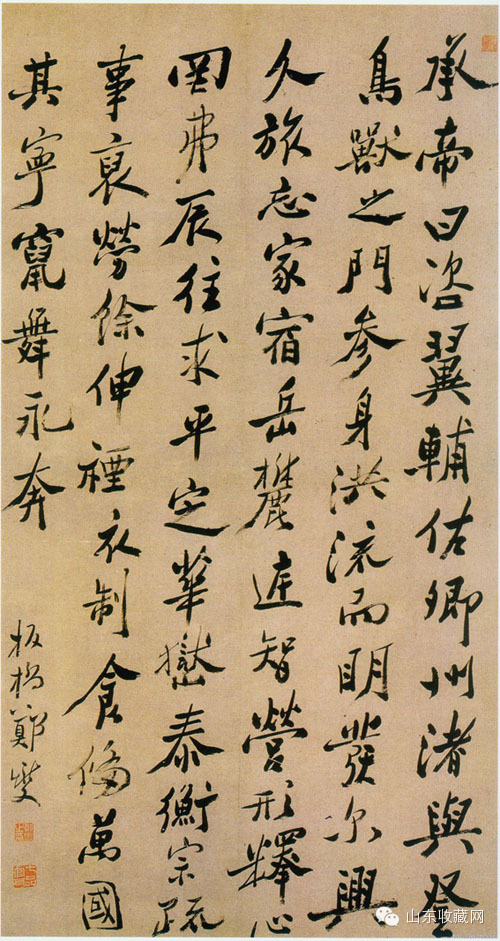 承帝曰咨翼輔佑卿州渚與登
鳥獸之門参身洪流而明發尔興
久旅忘家宿岳麓庭智營形釋心
罔弗辰往求平定華嶽泰衡宗疏
事裒勞餘伸禋衣制食俻萬國
其寧竄舞永奔
板橋鄭燮
山东收藏网